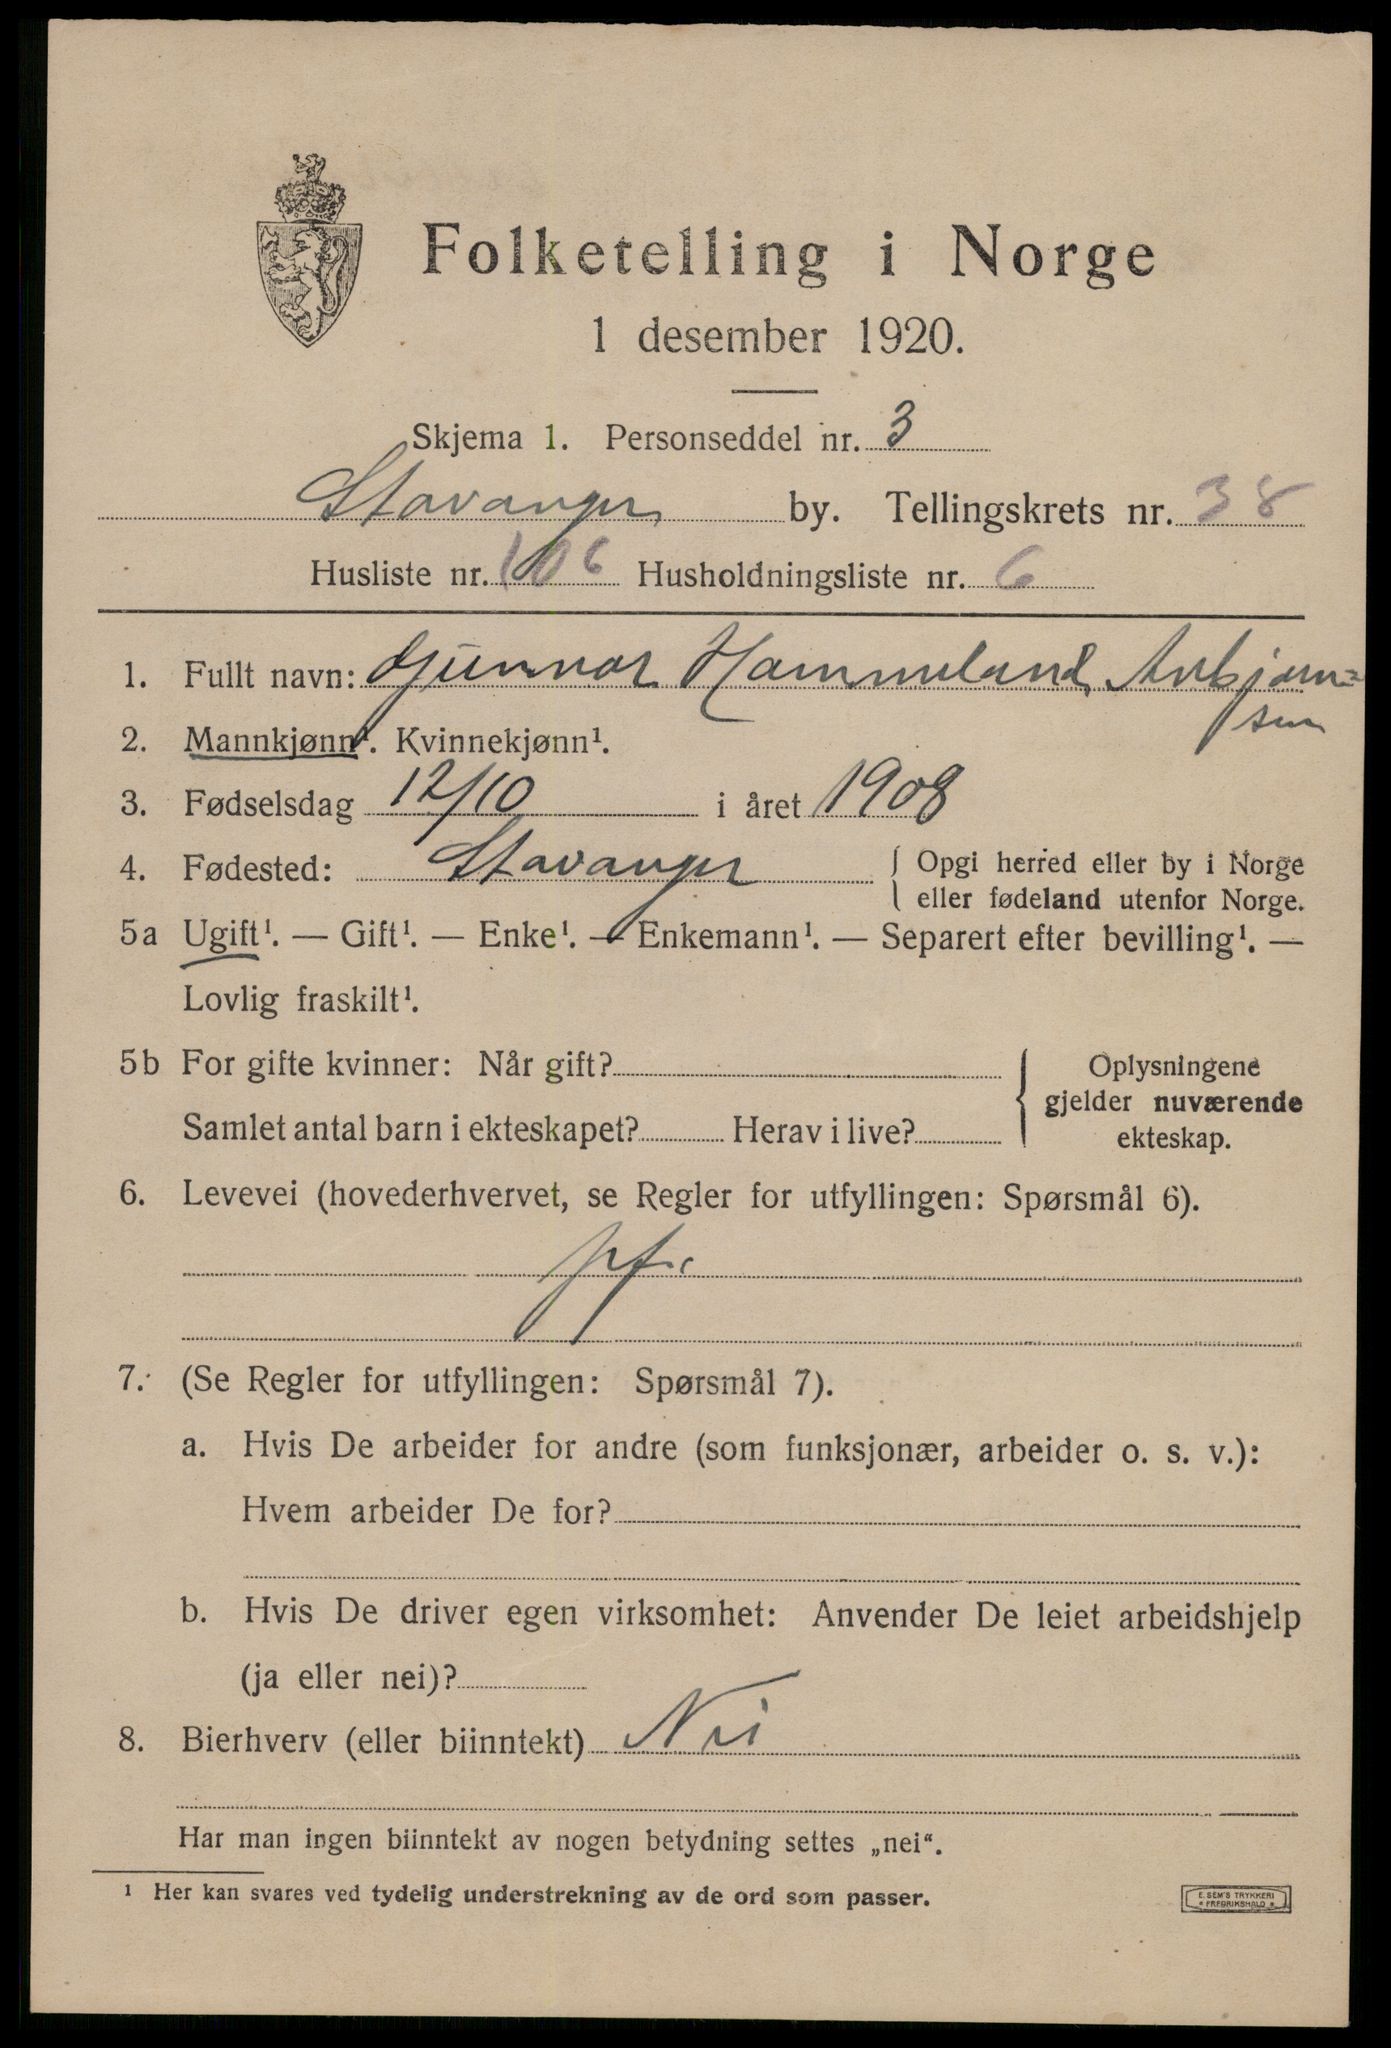 Folketelling i Norge
1 desember 1920.
Skjema 1. Personseddel nr. 3
Stavanger by. Tellingskrets nr. 38
Husliste nr. 106 Husholdningsliste nr. 6
1. Fullt navn: Gunnar Hammeland Asbjørn=
sen
2. Mannkjønn¹. Kvinnekjønn¹.
3. Fødselsdag 12/10 i året 1908
4. Fødested: Stavanger { Opgi herred eller by i Norge
eller fødeland utenfor Norge.
5a Ugift¹. — Gift¹. — Enke¹. — Enkemann¹. — Separert efter bevilling¹. —
Lovlig fraskilt¹.
5b For gifte kvinner: Når gift? { Oplysningene
gjelder nuværende
Samlet antal barn i ekteskapet? Herav i live? ekteskap.
6. Levevei (hovederhvervet, se Regler for utfyllingen: Spørsmål 6).
7. (Se Regler for utfyllingen: Spørsmål 7).
a. Hvis De arbeider for andre (som funksjonær, arbeider o. s. v.):
Hvem arbeider De for?
b. Hvis De driver egen virksomhet: Anvender De leiet arbeidshjelp
(ja eller nei)?
8. Bierhverv (eller biinntekt) Nei
Har man ingen biinntekt av nogen betydning settes „nei“.
¹ Her kan svares ved tydelig understrekning av de ord som passer.
E. SEM'S TRYKKERI
* FREDRIKSHALD *